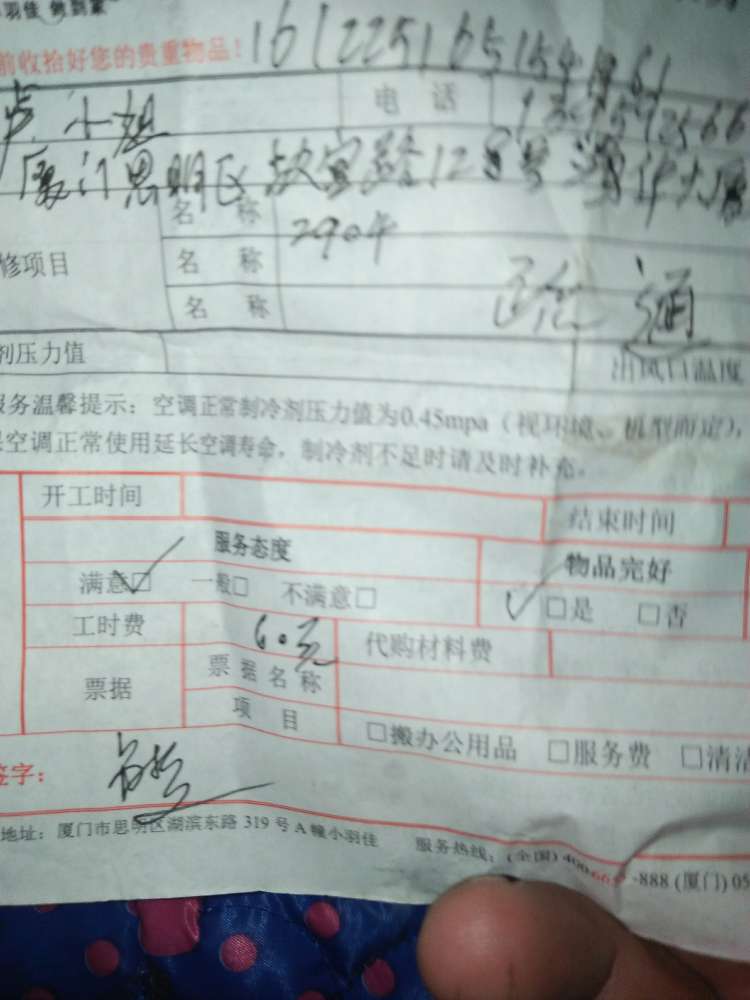 小羽佳 做到家
前收拾好您的贵重物品! 16122516515
电话
卢小姐
厦门思明区故宫路128号 大厦
名称 2904
修项目 名称
名称
疏通
剂压力值 出风口温度
服务温馨提示：空调正常制冷剂压力值为0.45mpa（视环境、机型而定），
空调正常使用延长空调寿命，制冷剂不足时请及时补充。
开工时间 结束时间
服务态度 物品完好
满意□ 一般□ 不满意□ □是 □否
工时费 60元 代购材料费
票据 票据名称
项目 □搬办公用品 □服务费 □清洁
签字：
地址：厦门市思明区湖滨东路 319 号 A 幢小羽佳 服务热线：(全国) 400 -888 (厦门) 05